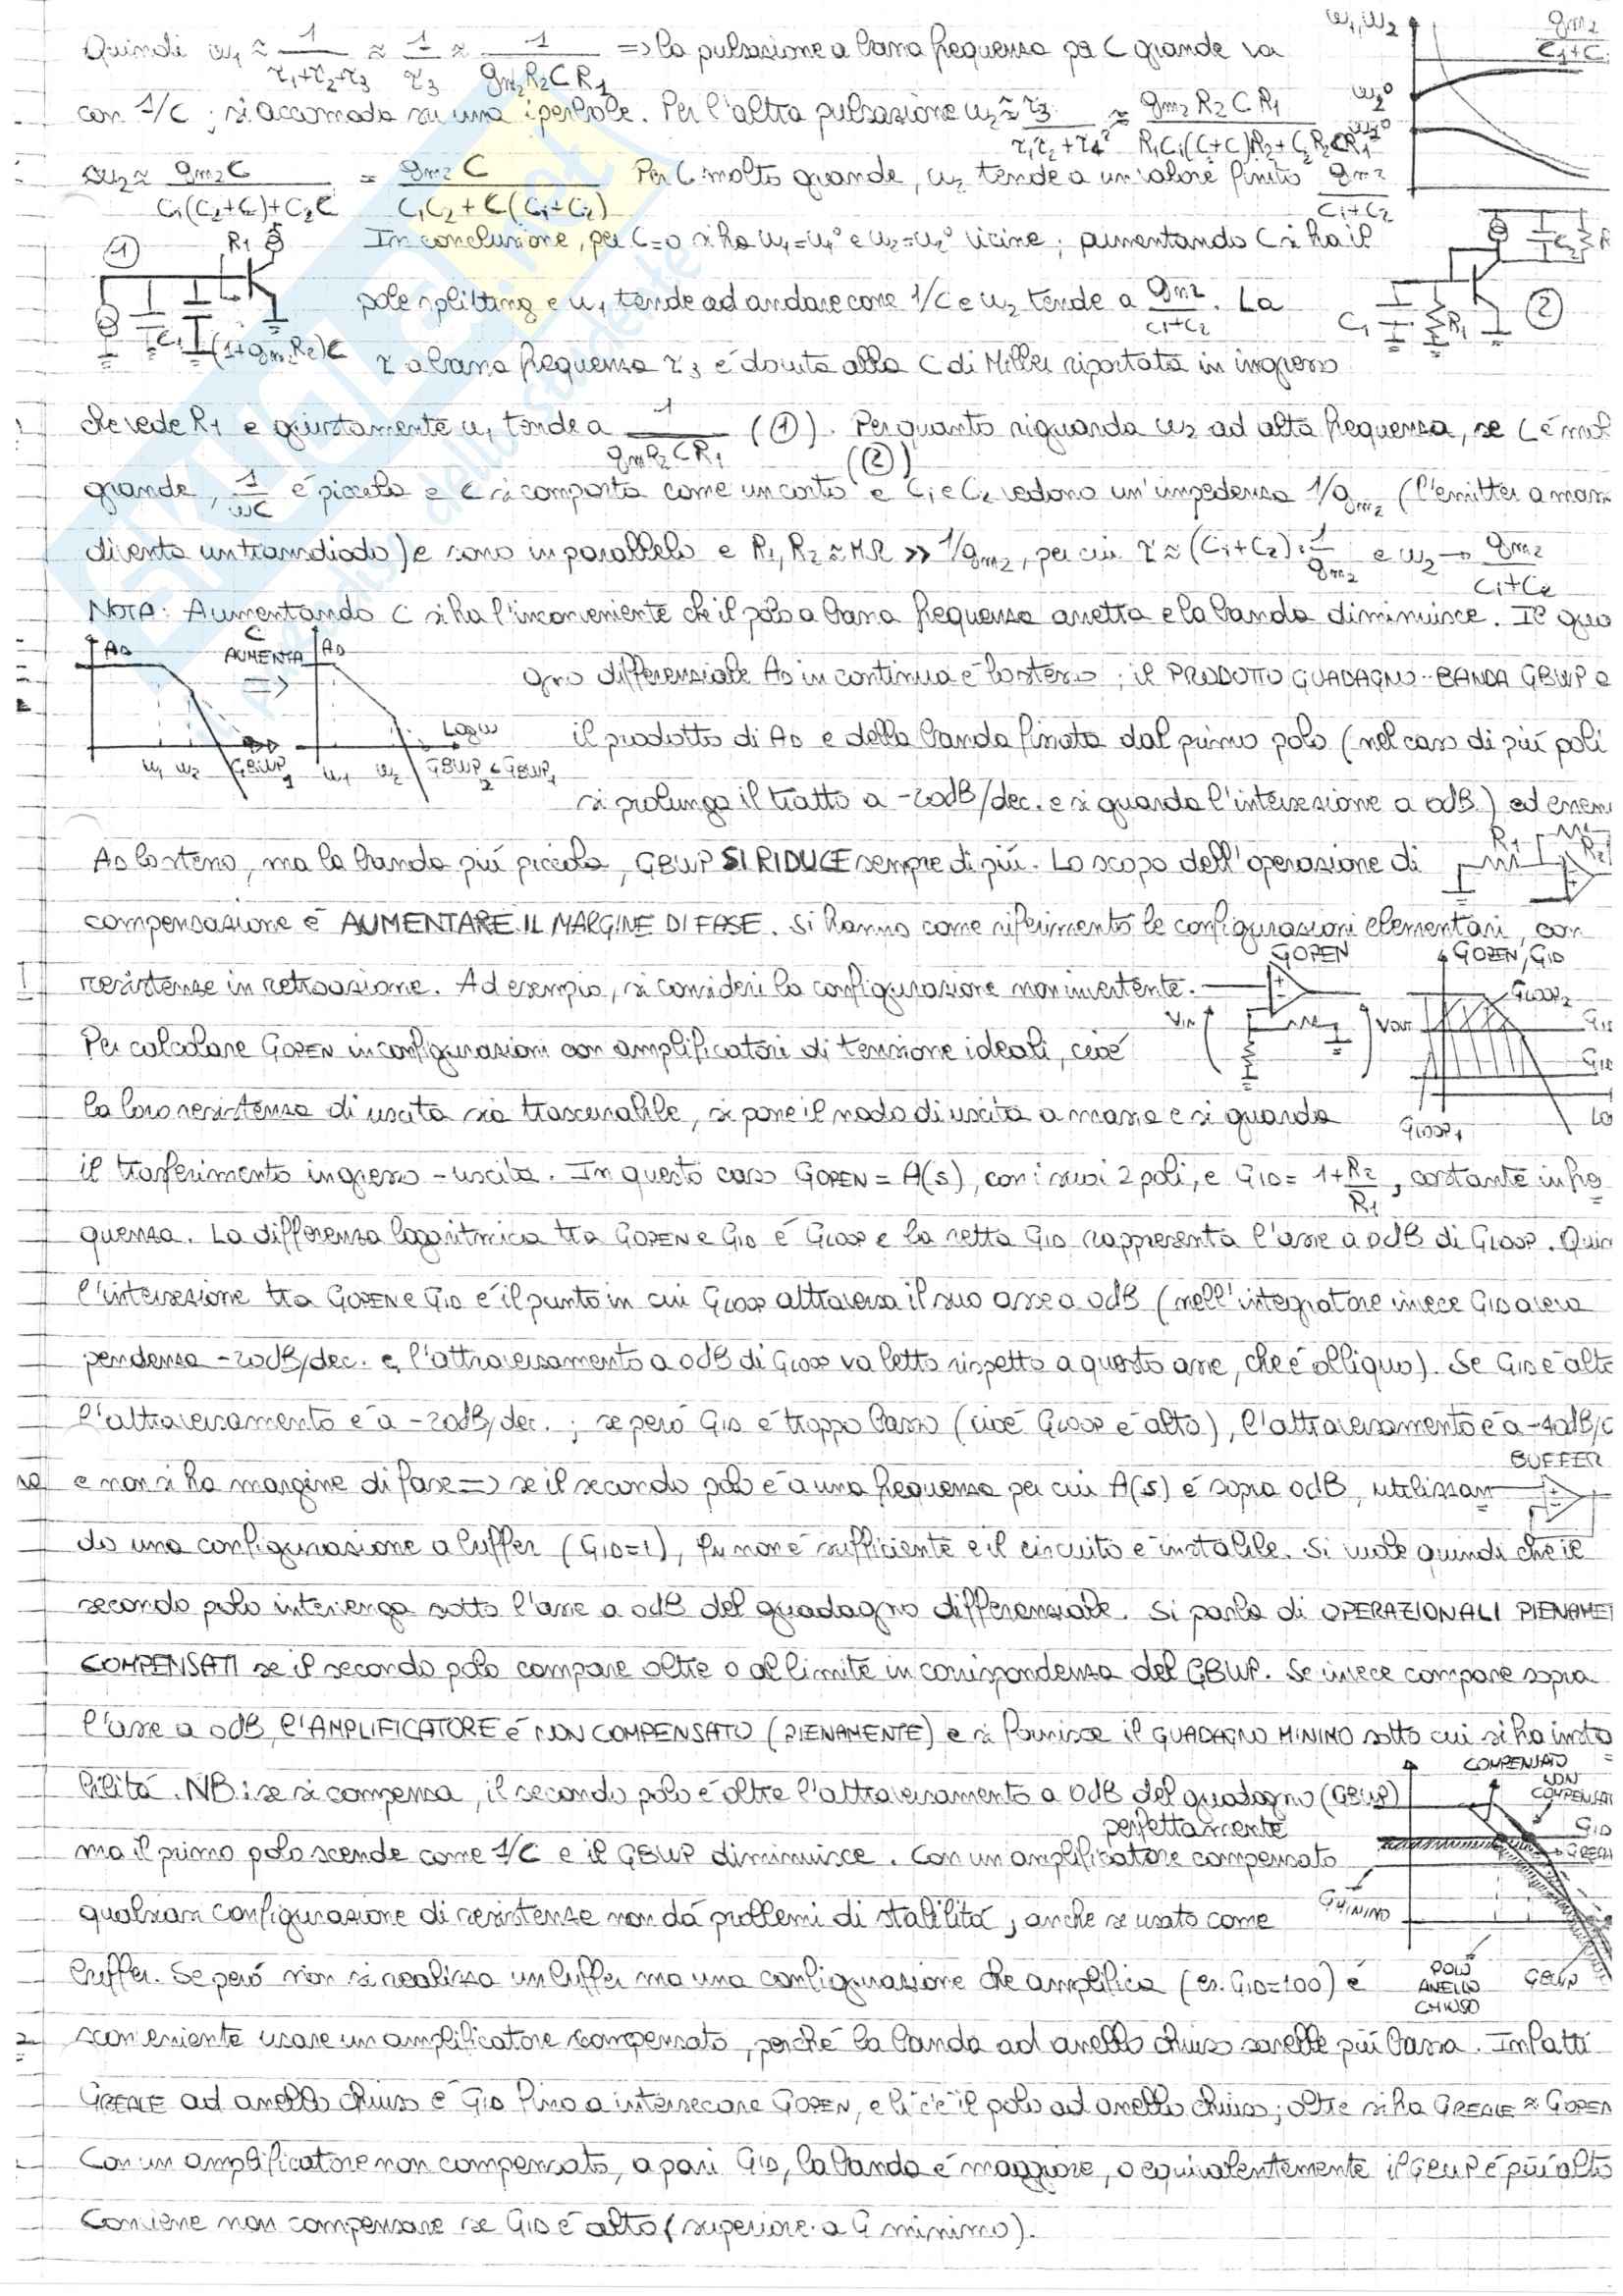 Quindi ω₁ ≈ 1/(τ₁+τ₂+τ₃) ≈ 1/τ₃ ≈ 1/(gm₂R₂CR₁) => la pulsazione a bassa frequenza per C grande va
con 1/C ; si accomoda su una iperbole. Per l'altra pulsazione ω₂ ≈ τ₃/(τ₁τ₂+τ₄²) ≈ gm₂R₂CR₁/(R₁C₁(C₂+C)R₂+C₂R₂CR₁)
ω₂ ≈ gm₂C/(C₁(C₂+C)+C₂C) = gm₂C/(C₁C₂+C(C₁+C₂)) Per C molto grande, ω₂ tende a un valore finito gm₂/(C₁+C₂)
ω₁,ω₂
gm₂/(C₁+C
ω₂°
ω₁°
In conclusione, per C=0 si ha ω₁=ω₁° e ω₂=ω₂° vicine ; aumentando C si ha il
pole splitting e ω₁ tende ad andare come 1/C e ω₂ tende a gm₂/(C₁+C₂). La
τ a bassa frequenza τ₃ è dovuta alla C di Miller riportata in ingresso
① R₁ C₁ (1+gm₂R₂)C
C₁ R₁ C₂ R ②
che vede R₁ e giustamente ω₁ tende a 1/(gmR₂CR₁) (①). Per quanto riguarda ω₂ ad alta frequenza, se C è mol
grande, 1/ωC è piccola e C si comporta come un corto (②) e C₁ e C₂ vedono un'impedenza 1/gm₂ (l'emitter a mass
diventa un transdiodo) e sono in parallelo e R₁, R₂ ≈ MΩ >> 1/gm₂, per cui τ ≈ (C₁+C₂)·1/gm₂ e ω₂ → gm₂/(C₁+C₂)
NOTA: Aumentando C si ha l'inconveniente che il polo a bassa frequenza arretra e la banda diminuisce. Il gua
gno differenziale AD in continua è lo stesso ; il PRODOTTO GUADAGNO-BANDA GBWP è
il prodotto di AD e della banda fissata dal primo polo (nel caso di più poli
si prolunga il tratto a -20dB/dec. e si guarda l'intersezione a 0dB) ed essen
AD C AUMENTA => AD
Logω
ω₁ ω₂ GBWP₁ ω₁ ω₂ GBWP₂<GBWP₁
AD lo stesso, ma la banda più piccola, GBWP SI RIDUCE sempre di più. Lo scopo dell'operazione di
R₁ R₂
compensazione è AUMENTARE IL MARGINE DI FASE. Si hanno come riferimento le configurazioni elementari, con
resistenze in retroazione. Ad esempio, si consideri la configurazione non invertente.
GOPEN
VIN VOUT
GOPEN, GID
GLOOP₂
GLOOP₁
Per calcolare GOPEN in configurazioni con amplificatori di tensione ideali, cioè
la loro resistenza di uscita sia trascurabile, si pone il nodo di uscita a massa e si guarda
il trasferimento ingresso - uscita. In questo caso GOPEN = A(s), con i suoi 2 poli, e GID = 1+R₂/R₁, costante in fre
quenza. La differenza logaritmica tra GOPEN e GID è GLOOP e la retta GID rappresenta l'asse a 0dB di GLOOP. Quin
l'intersezione tra GOPEN e GID è il punto in cui GLOOP attraversa il suo asse a 0dB (nell'integratore invece GID aveva
pendenza -20dB/dec. e l'attraversamento a 0dB di GLOOP va letto rispetto a questo asse, che è obliquo). Se GID è alto
l'attraversamento è a -20dB/dec. ; se però GID è troppo basso (cioè GLOOP è alto), l'attraversamento è a -40dB/
e non si ha margine di fase => se il secondo polo è a una frequenza per cui A(s) è sopra 0dB, utilizzan
BUFFER
do una configurazione a buffer (GID=1), φM non è sufficiente e il circuito è instabile. Si vuole quindi che il
secondo polo intervenga sotto l'asse a 0dB del guadagno differenziale. Si parla di OPERAZIONALI PIENAME
COMPENSATI se il secondo polo compare oltre o al limite in corrispondenza del GBWP. Se invece compare sopra
l'asse a 0dB, l'AMPLIFICATORE è NON COMPENSATO (PIENAMENTE) e si fornisce il GUADAGNO MINIMO sotto cui si ha insta
bilità. NB: se si compensa, il secondo polo è oltre l'attraversamento a 0dB del guadagno (GBWP)
ma il primo polo scende come 1/C e il GBWP diminuisce. Con un amplificatore perfettamente compensato
qualsiasi configurazione di resistenze non dà problemi di stabilità, anche se usato come
buffer. Se però non si realizza un buffer ma una configurazione che amplifica (es. GID=100) è
COMPENSATO
NON COMPENSAT
GID
GREAL
GMINIMO
POLO ANELLO CHIUSO
GBWP
sconveniente usare un amplificatore compensato, perché la banda ad anello chiuso sarebbe più bassa. Infatti
GREALE ad anello chiuso è GID fino a intersecare GOPEN, e lì c'è il polo ad anello chiuso; oltre si ha GREALE ≈ GOPEN
Con un amplificatore non compensato, a pari GID, la banda è maggiore, o equivalentemente il GBWP è più alto
Conviene non compensare se GID è alto (superiore a G minimo).